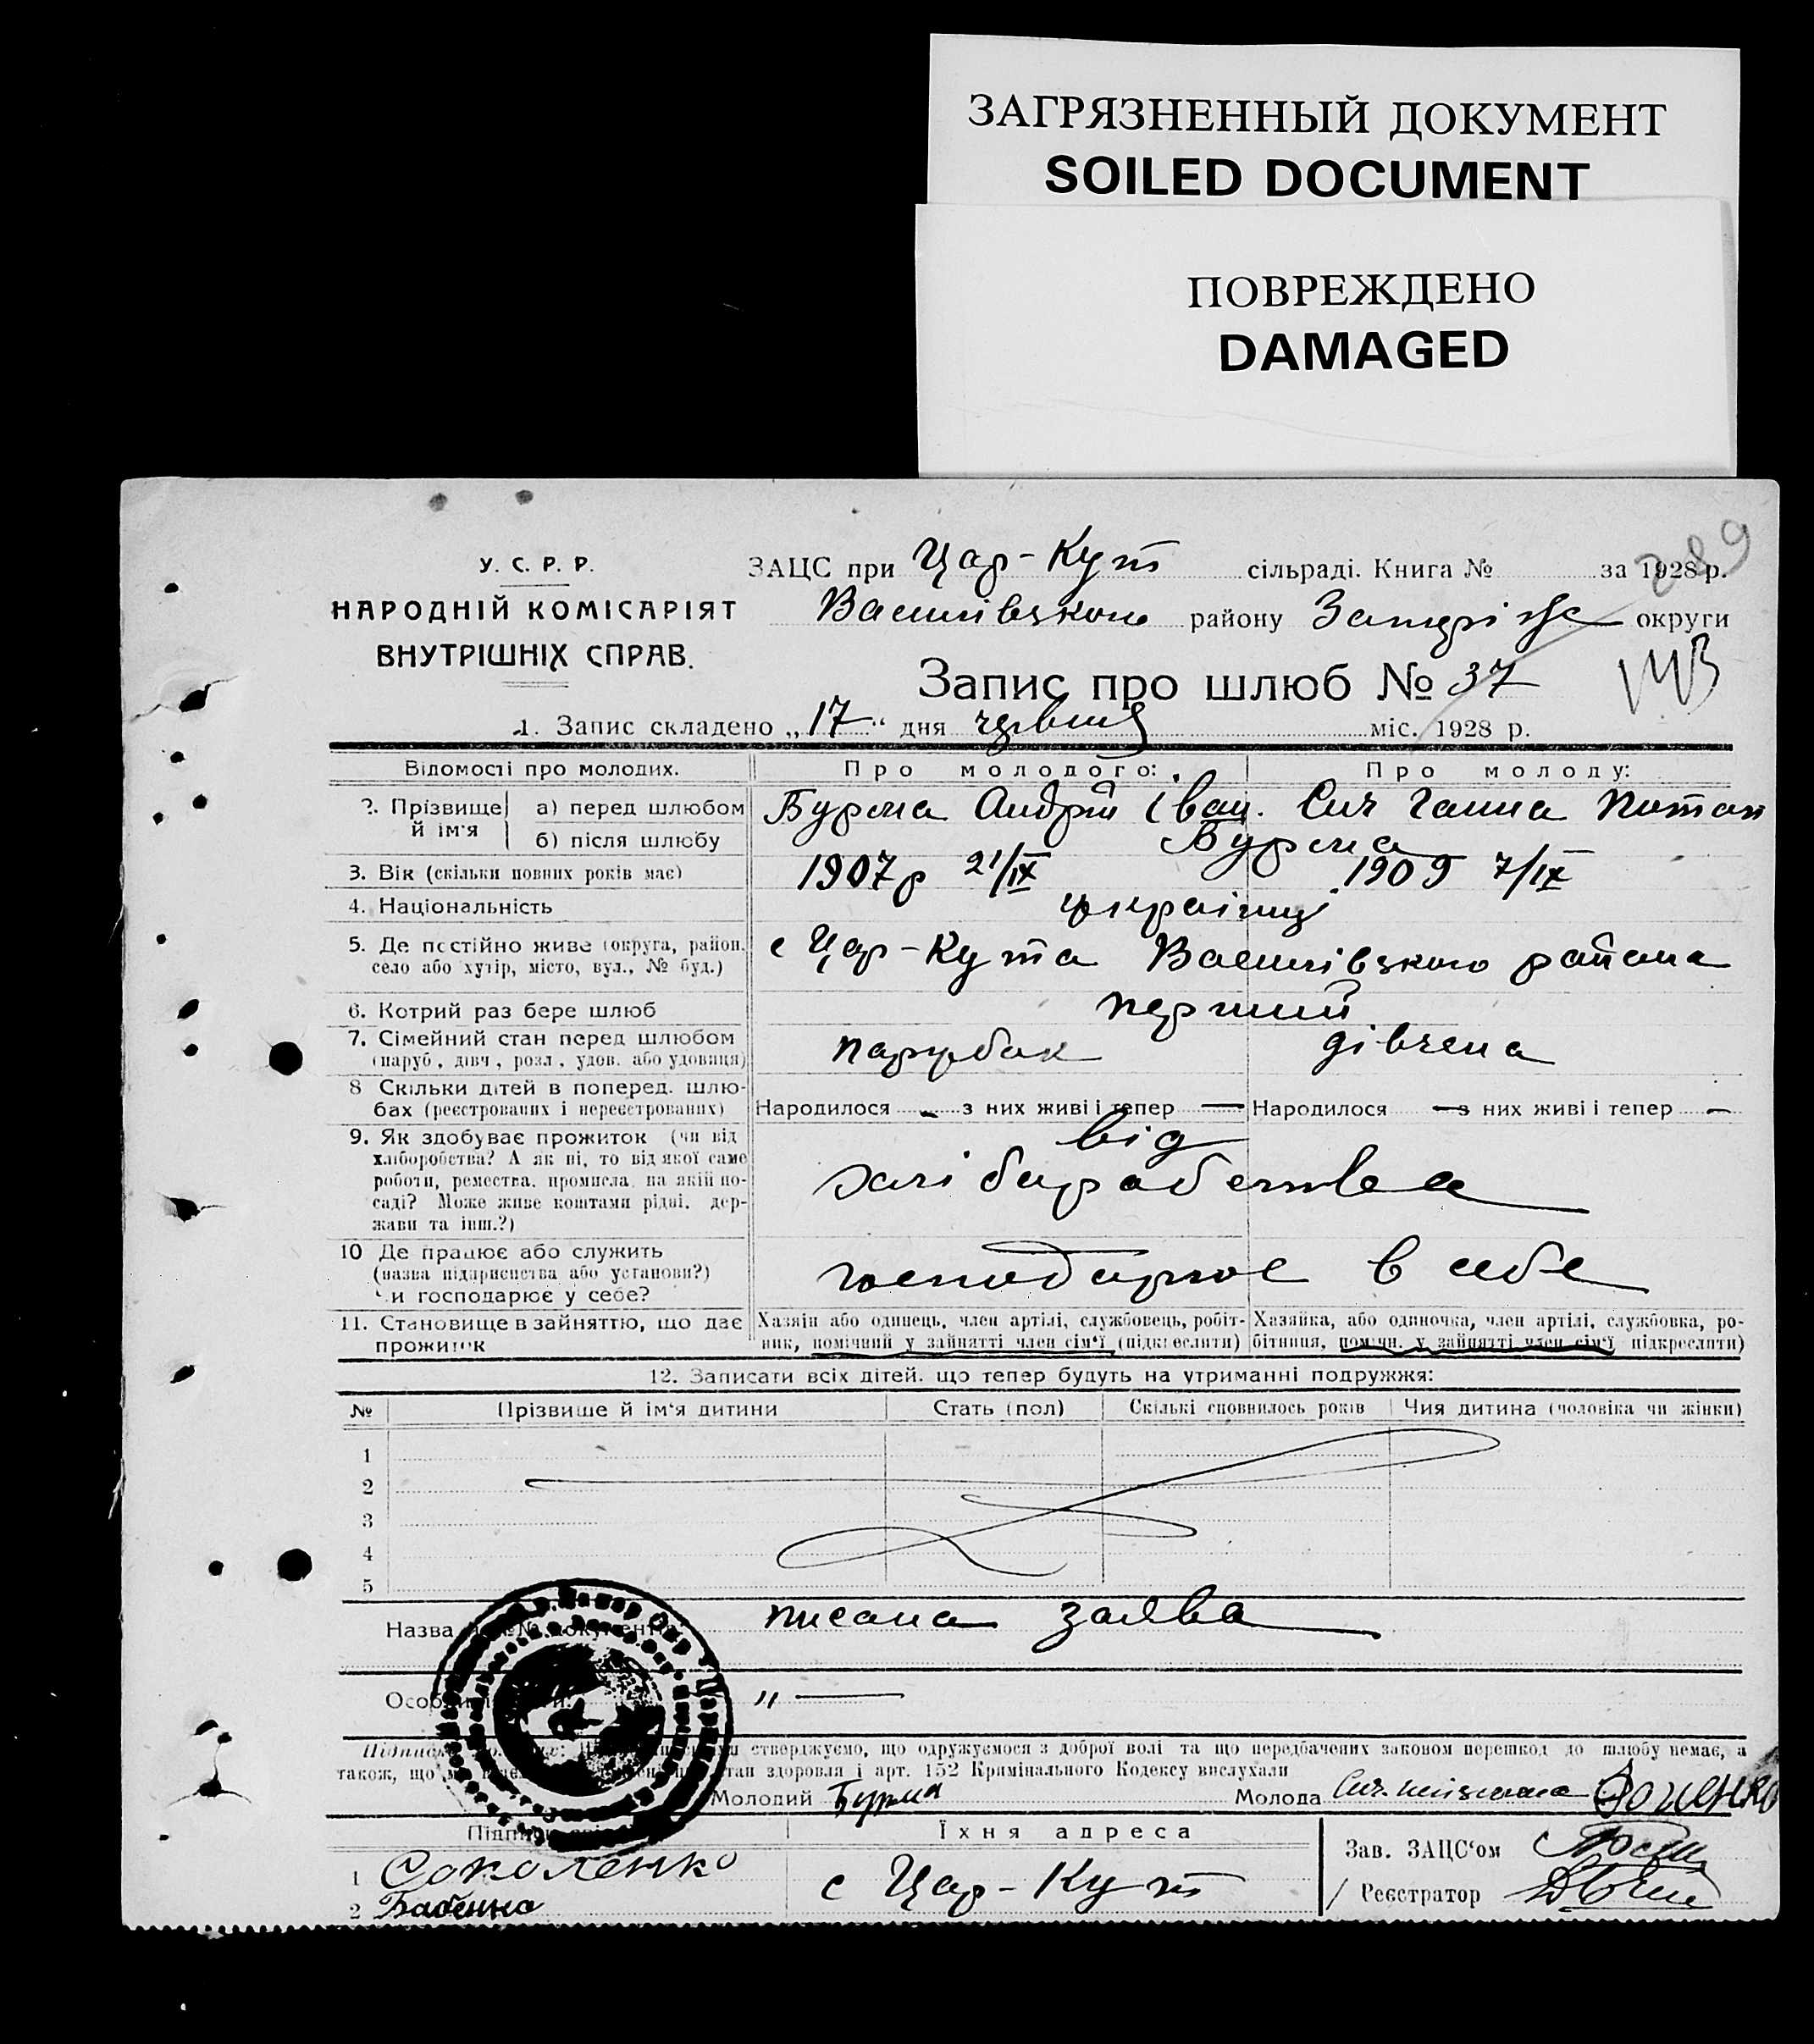 ЗАГРЯЗНЕННЫЙ ДОКУМЕНТ
SOILED DOCUMENT
ПОВРЕЖДЕНО
DAMAGED
289
У. С. Р. Р.
НАРОДНІЙ КОМІСАРІЯТ
ВНУТРІШНІХ СПРАВ.
ЗАЦС при Цар-Кут сільраді. Книга № за 1928 р.
Василівського району Запоріж округи
Запис про шлюб № 37
1. Запис складено „17" дня червня міс. 1928 р.
Відомості про молодих. Про молодого: Про молоду:
2. Прізвище й ім'я а) перед шлюбом Бурма Андрій Іван. Сич Ганна Потап
б) після шлюбу Бурма
3. Вік (скільки повних років має) 1907 р 21/IX 1909 7/IX
4. Національність українці
5. Де постійно живе (округа, район, с Цар-Кута Василівського района
село або хутір, місто, вул., № буд.)
6. Котрий раз бере шлюб перший
7. Сімейний стан перед шлюбом парубок дівчена
(паруб., дівч., розл., удов. або удовиця)
8 Скільки дітей в поперед. шлю-
бах (реєстрованих і нереєстрованих) Народилося - з них живі і тепер — Народилося — з них живі і тепер -
9. Як здобуває прожиток (чи від від
хліборобства? А як ні, то від якої саме
роботи, ремества, промисла, на якій по- хлібаробства
саді? Може живе коштами рідні, дер-
жави та інш.?)
10 Де працює або служить
(назва підприємства або установи?) господарює в себе
Чи господарює у себе?
11. Становище в зайняттю, що дає Хазяїн або одинець, член артілі, службовець, робіт- Хазяйка, або одиночка, член артілі, службовка, ро-
прожиток ник, помічний у зайнятті член сім'ї (підкреслити) бітниця, помічн. у зайнятті член сім'ї підкреслити)
12. Записати всіх дітей, що тепер будуть на утриманні подружжя:
№ Прізвище й ім'я дитини Стать (пол) Скількі сповнилось років Чия дитина (чоловіка чи жінки)
1
2
3
4
5
Назва писана заява
Особ „ —
стверджуємо, що одружуємося з доброї волі та що передбачених законом перешкод до шлюбу немає, а
також, що стан здоровля і арт. 152 Кримінального Кодексу вислухали
Молодий Бурма Молода Сич
Їхня адреса
1 Соколенко с Цар-Кут Зав. ЗАЦС'ом
2 Бабенко Реєстратор